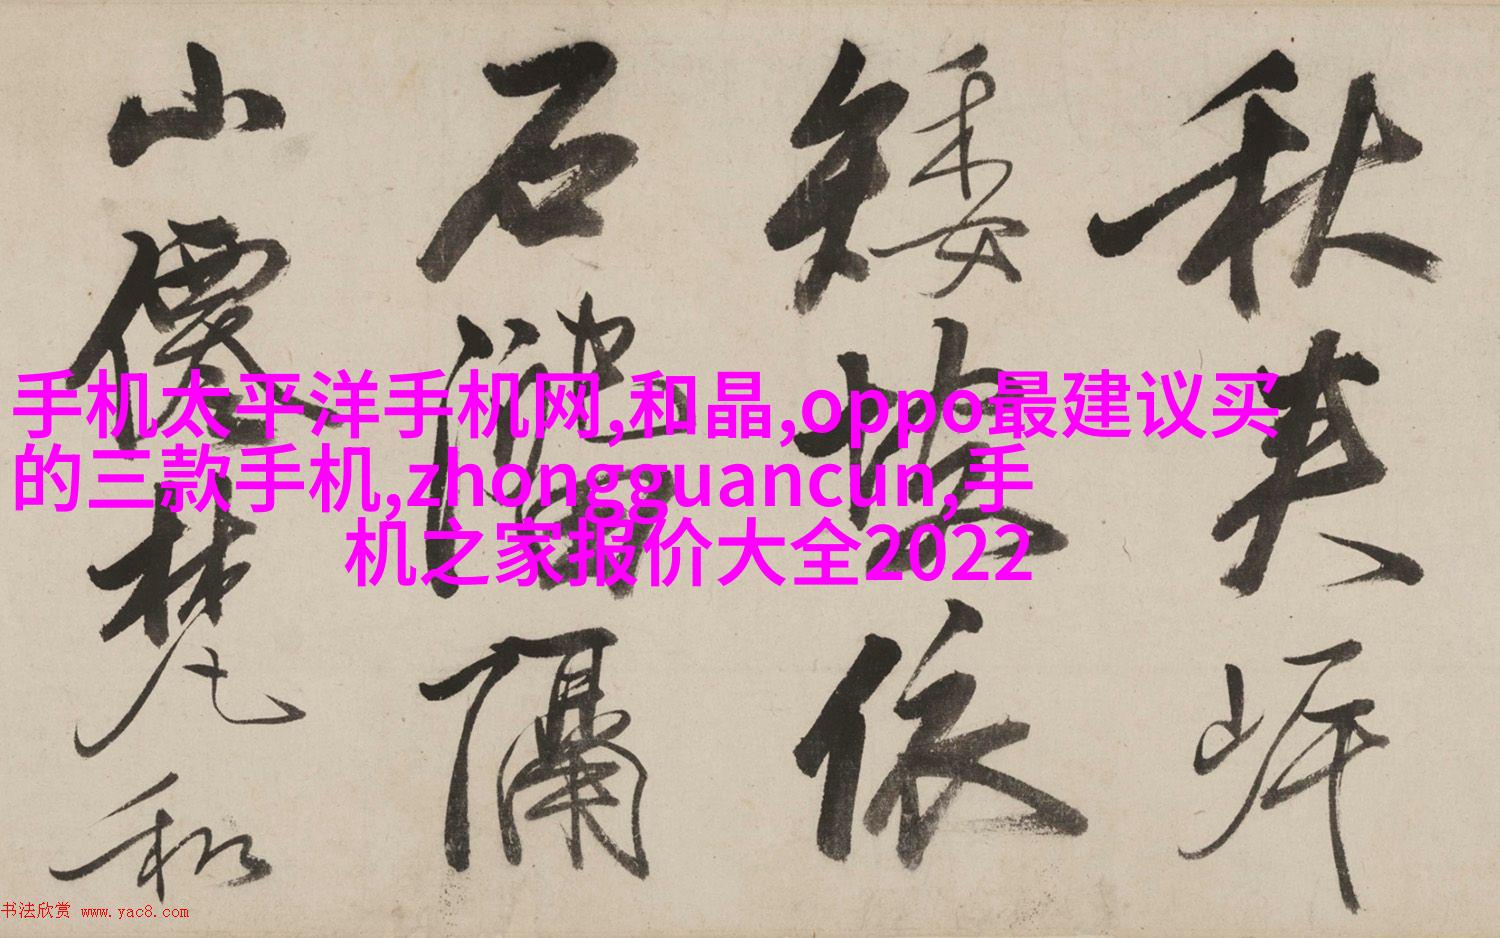 秋英岸
矮盐依
石池隔
山僊梵和
手机太平洋手机网,和晶,oppo最建议买
的三款手机,zhongguancun,手
机之家报价大全2022
书法欣赏 www.yac8.com